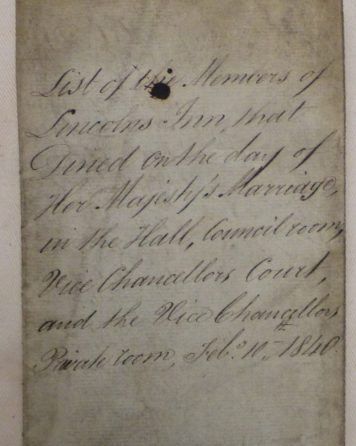 List of the Members of
Lincolns Inn, that
Dined on the day of
Her Majesty's Marriage,
in the Hall, Council room,
Vice Chancellors Court,
and the Vice Chancellors
Private room, Feb.º 10.th 1840